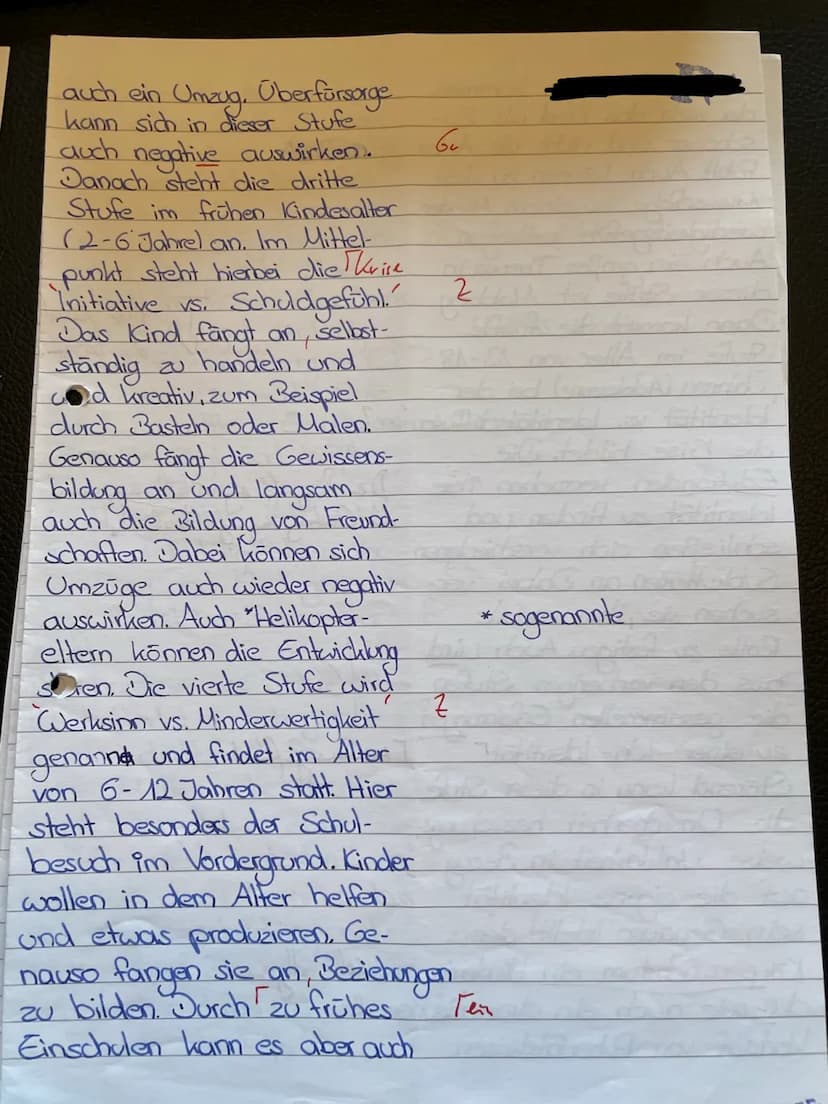 auch ein Umzug. Überfürsorge
kann sich in dieser Stufe
auch negative auswirken. Gr
Danach steht die dritte
Stufe im frühen Kindesalter
(2-6 Jahre) an. Im Mittel-
punkt steht hierbei die ┌Krise
'Initiative vs. Schuldgefühl.' Z
Das Kind fängt an, selbst-
ständig zu handeln und
und kreativ, zum Beispiel
durch Basteln oder Malen.
Genauso fängt die Gewissens-
bildung an und langsam
auch die Bildung von Freund-
schaften. Dabei können sich
Umzüge auch wieder negativ
auswirken. Auch *Helikopter- * sogenannte
eltern können die Entwicklung
stören. Die vierte Stufe wird
'Werksinn vs. Minderwertigkeit' Z
genannt und findet im Alter
von 6-12 Jahren statt. Hier
steht besonders der Schul-
besuch im Vordergrund. Kinder
wollen in dem Alter helfen
und etwas produzieren. Ge-
nauso fangen sie an, Beziehungen
zu bilden. Durch ┌ zu frühes ┌ein
Einschulen kann es aber auch